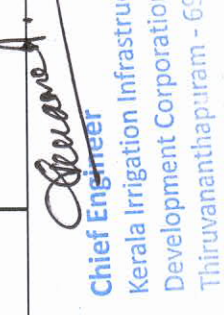 Chief Engineer
Kerala Irrigation Infrastru
Development Corporatio
Thiruvananthapuram - 69